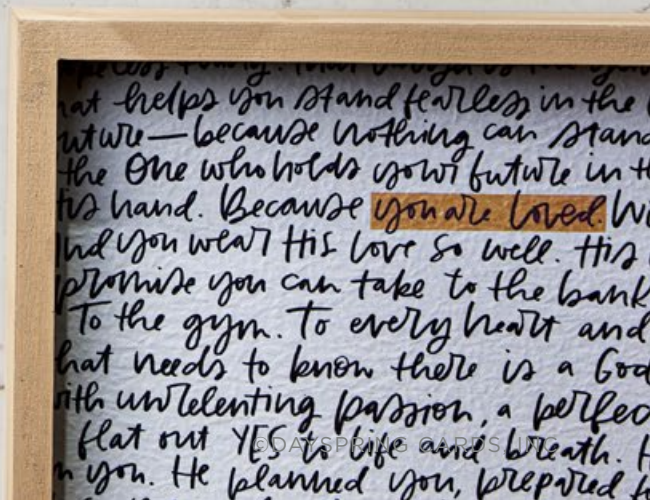 hat helps you stand fearless in the
uture—because nothing can stand
the One who holds your future in
his hand. Because you are loved.
And you wear His love so well. His
promise you can take to the bank
To the gym. To every heart and
hat needs to know there is a God
ith unrelenting passion, a perfec
flat out YES to life and breath.
©DAYSPRING CARDS, INC.
n you. He planned you, prepared